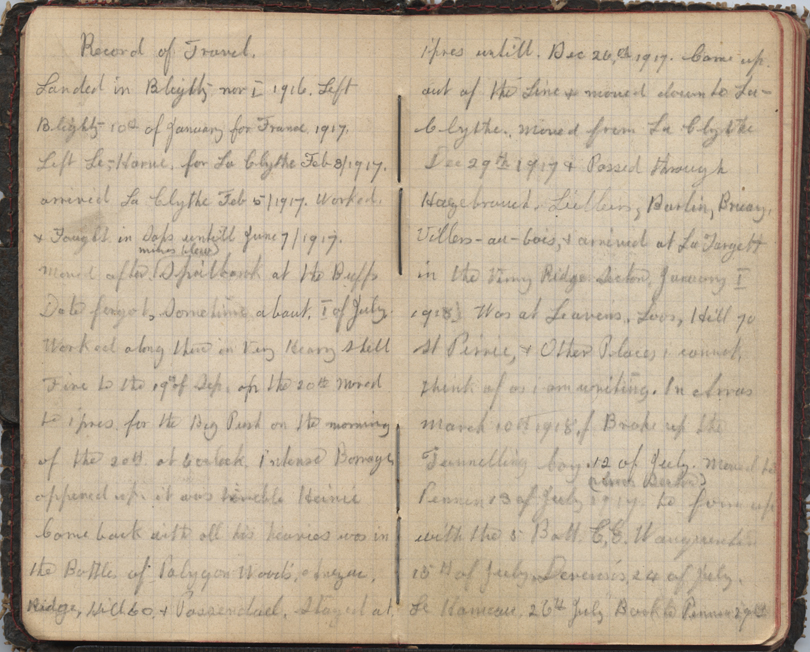 Record of Travel.
Landed in Blighty nov I 1916. Left
Blighty 10th of January for France 1917.
Left Le-Harve. for La Clythe Feb 3/1917.
arrived La Clythe Feb 5/1917. Worked.
& Fought in Saps untill June 7/1917.
mines blew
moved after. Spoilbank at the Buffs
Date forgot, Sometime about. I of July.
Worked along there in Very Heavy Shell
Fire to the 19th of Sep. on the 20th Moved
to ipres. for the Big Push on the morning
of the 20th. at 6 oclock. Intense Borrage
oppened up. it was terrible Heinie
Come back with all his heavies was in
the Battle of Polygon Woods,
Ridge, Hill 60, & Passendael. Stayed at
ipres untill. Dec 26,th 1917. Came up.
out of the Line & moved down to La-
Clythe. moved from La Clythe
Dec 29th 1917 & Passed through
Hazebrouck. Lillers, Barlin, Bruay,
Villers-au-bois, & arrived at La Targett
in the Vimy Ridge Sector, January I
1918. Was at Leavens, Loos, Hill 70
St Pierrie, & Other Places i cannot
think of as i am writing. In Arras
March 10th 1918, Broke up the
Tunnelling Coy. 12 of July. Moved to
Pernes 13 of July to form up
with the 5 Batt. C.E.
15th of July. 24 of July.
Le Hameau. 26th July Back to Pernes 29th